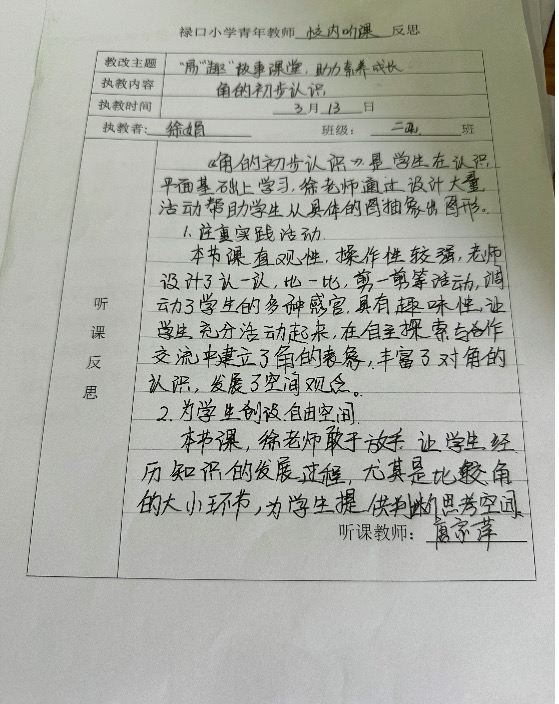 禄口小学青年教师 校内听课 反思
教改主题 "趣"故事课堂，助力素养成长
执教内容 角的初步认识
执教时间 3月13日
执教者: 徐娟 班级: 二 班
听课反思
《角的初步认识》是学生在认识
平面基础上学习，徐老师通过设计大量
活动帮助学生从具体的图抽象出图形。
1.注重实践活动
本节课直观性，操作性较强，老师
设计了认一认，比一比，剪一剪等活动，调
动了学生的多种感官，具有趣味性，让
学生充分活动起来，在自主探索与合作
交流中建立了角的表象，丰富了对角的
认识，发展了空间观念。
2.为学生创设自由空间
本节课，徐老师敢于放手，让学生经
历知识的发展过程，尤其是比较角
的大小环节，为学生提供判断思考空间
听课教师: 唐家萍